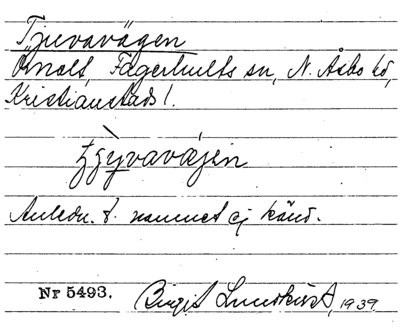 Tjuvavägen
Örnalt, Fagerhults sn, N. Åsbo hd,
Kristianstads l.
Anledn. t. namnet ej känd.
Nr 5493. Birgit Lundkvist, 1939.